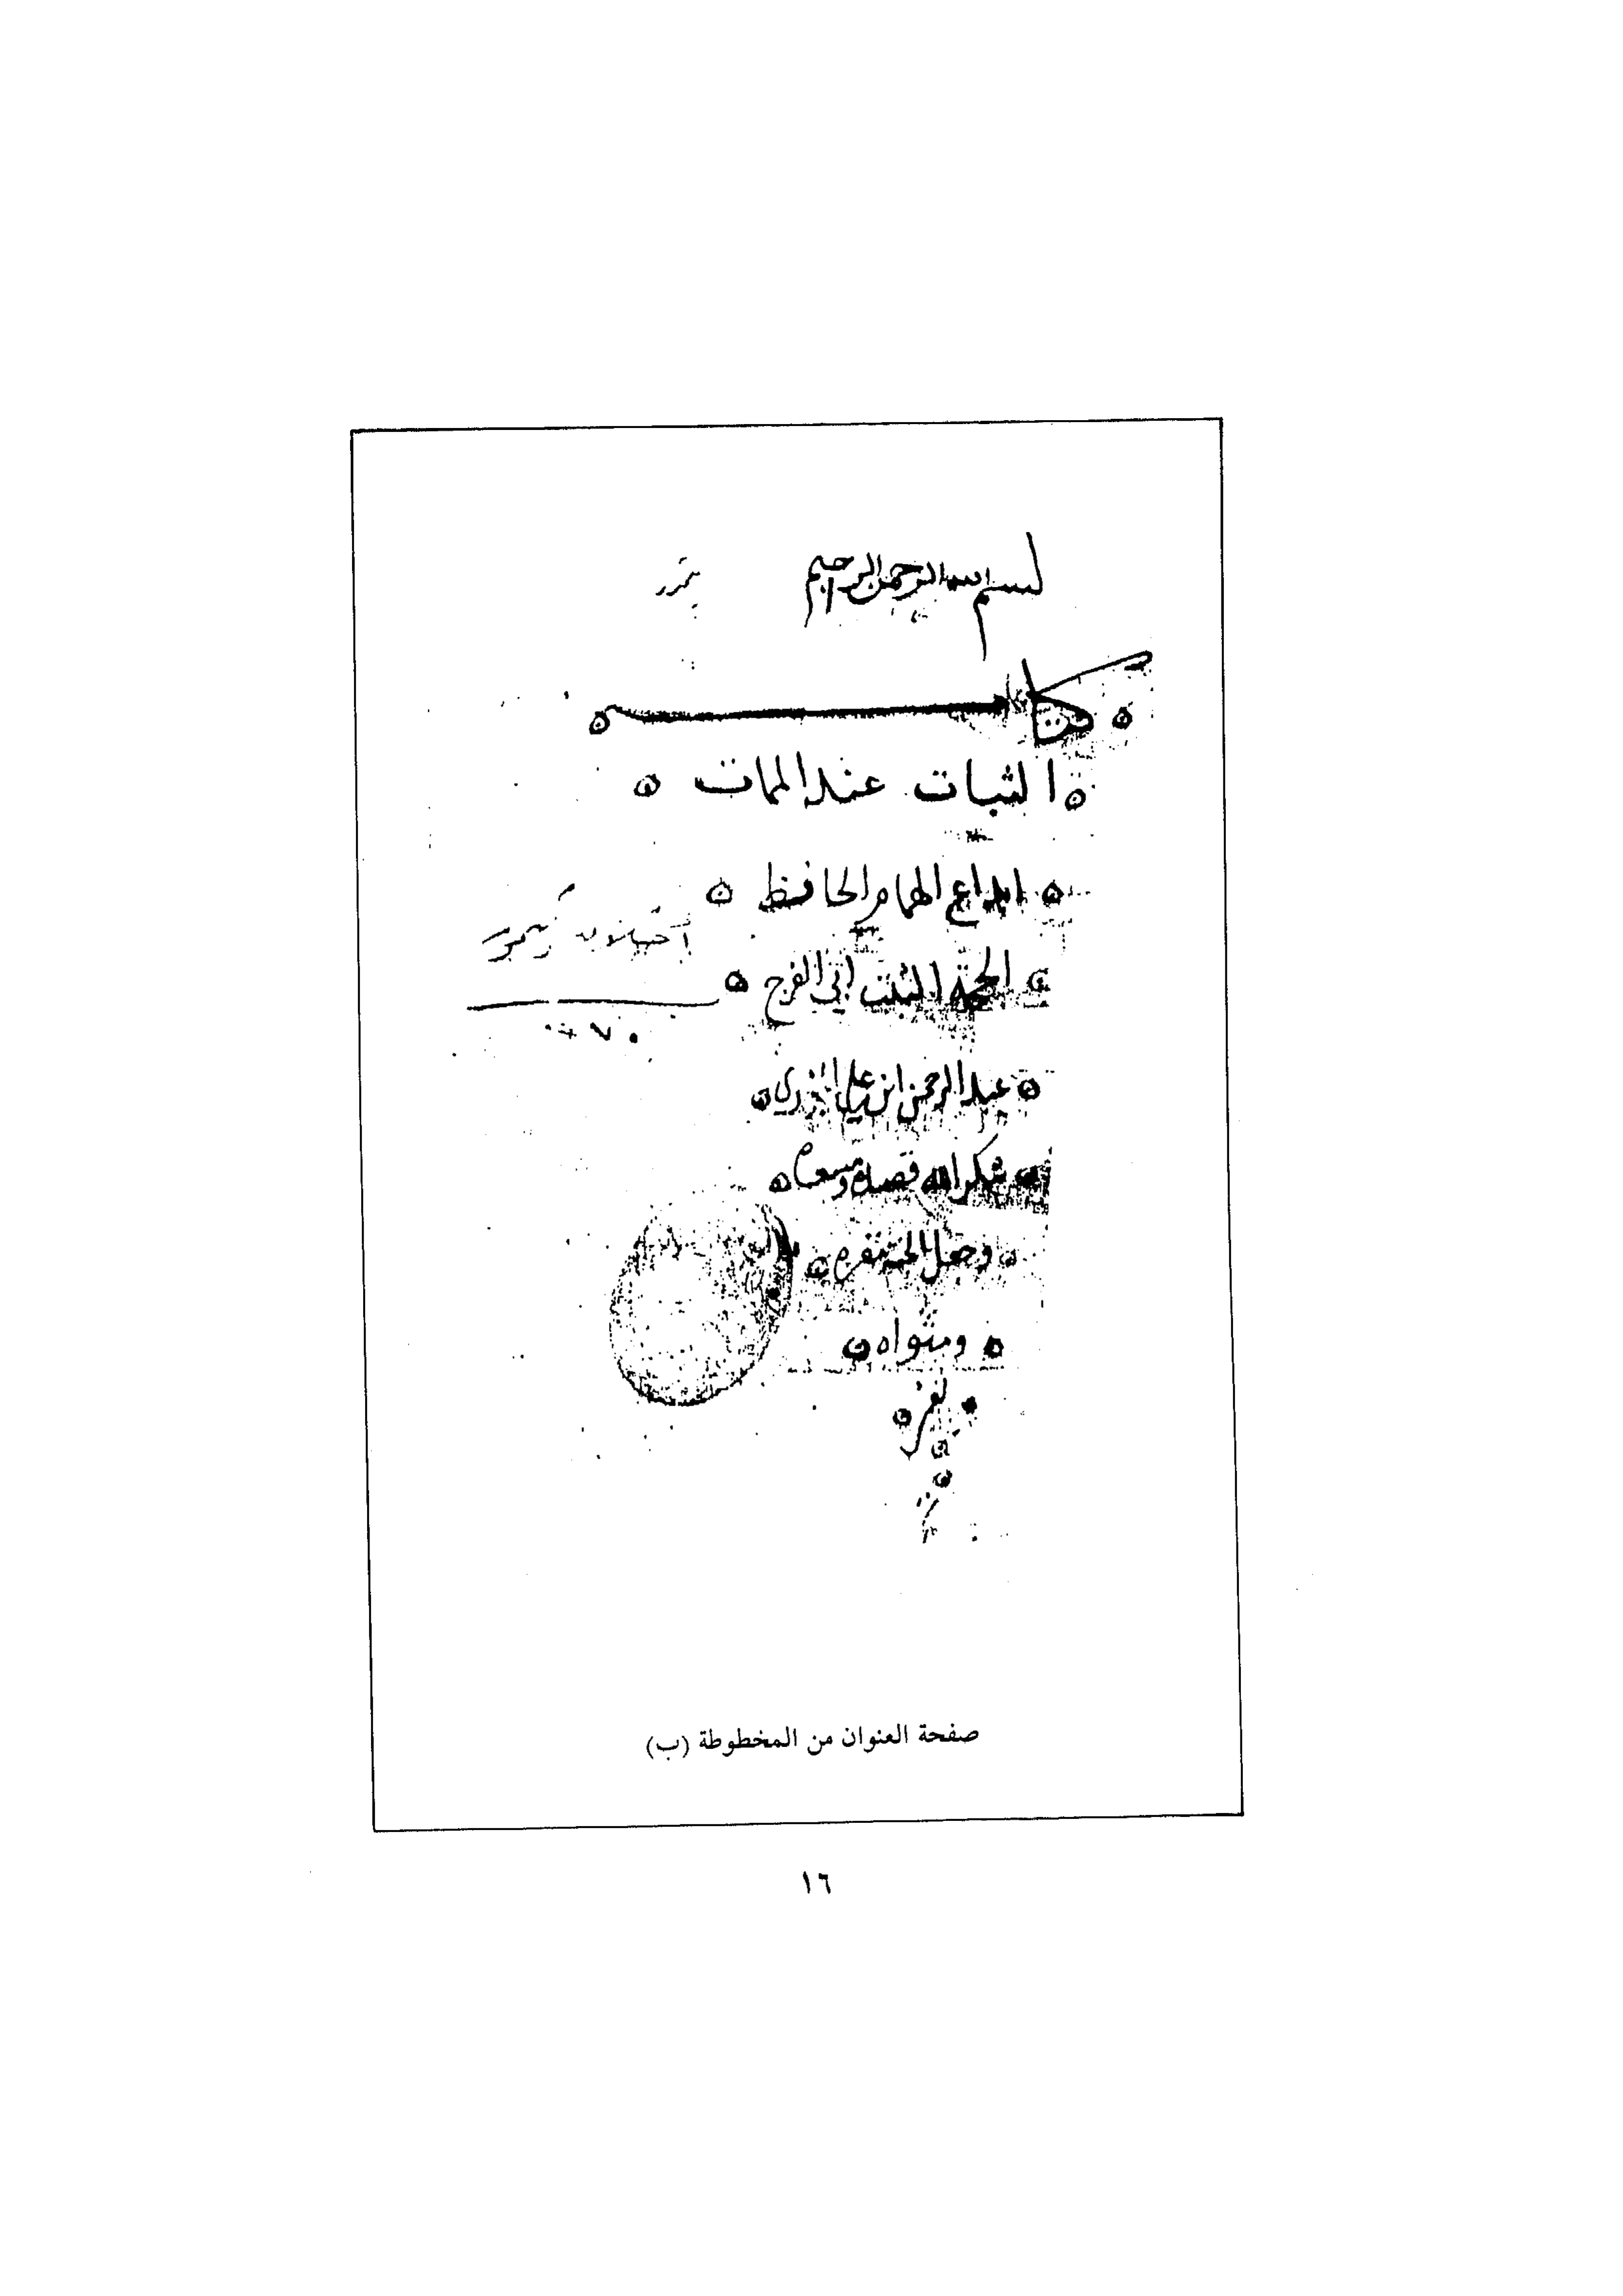 بسم الله الرحمن الرحيم
كتاب
الثبات عند الممات
ابداع الهمام الحافظ
الحجة الثبت ابي الفرج
عبد الرحمن ابن علي الجوزي
شكر الله قصده
وجعل الجنة مقره
ومثواه
صفحة العنوان من المخطوطة (ب)
١٦